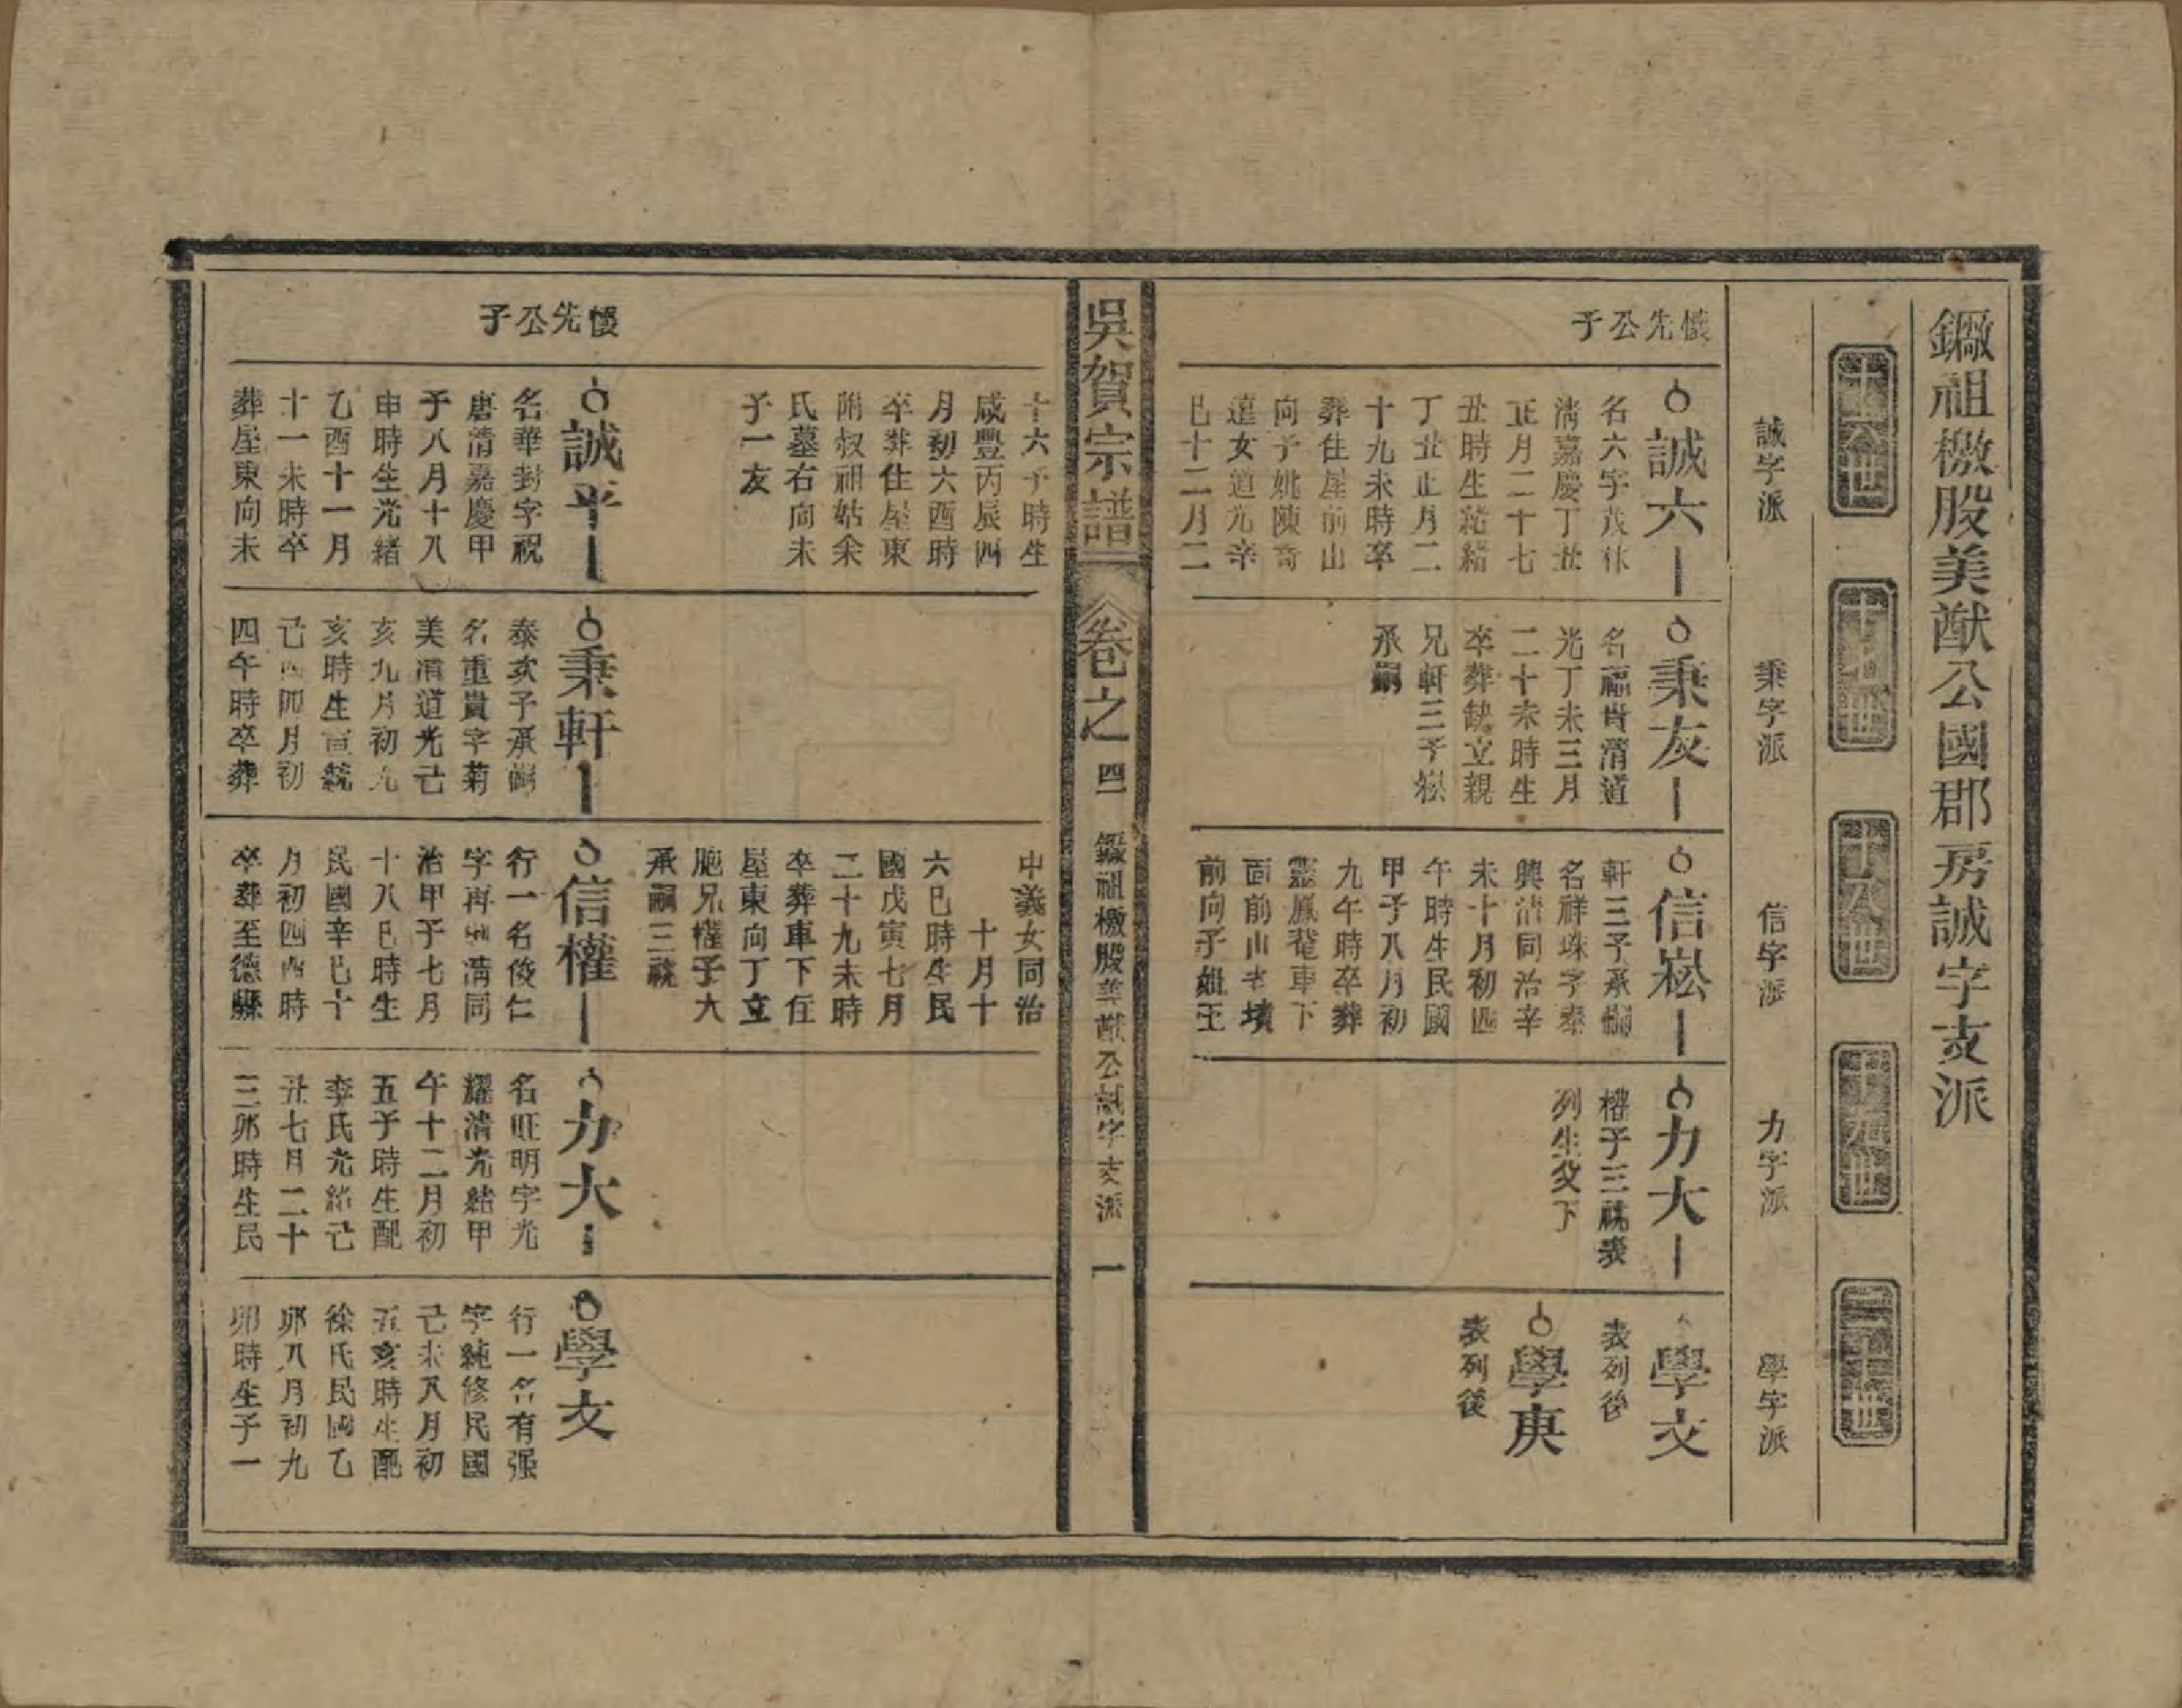 鐝祖檄股美猷公國郡房誠字支派
十六世
十七世
十八世
十九世
二十世
誠字派
秉字派
信字派
力字派
學字派
懷先公子
誠六
名六字茂休
清嘉慶丁丑
正月二十七
丑時生光緒
丁丑正月二
十九未時卒
葬住屋前山
向子姚陳奇
達女道光辛
巳十二月二
秉友
名福貴清道
光丁未三月
二十未時生
卒葬缺立親
兄軒三子崧
承嗣
信崧
軒三子承嗣
名祥珠字泰
興清同治辛
未十月初四
午時生民國
甲子八月初
九午時卒葬
靈鳳菴車下
面前山老墳
前向子妣王
力大
權子三祧表
列生父下
學文
表列後
學庚
表列後
吳賀宗譜
卷之四
鐝祖檄股美猷公誠字支派
一
十六子時生
咸豐丙辰四
月初六酉時
卒葬住屋東
附叔祖姑余
氏墓右向未
子一友
中義女同治
十月十
六巳時生民
國戊寅七月
二十九未時
卒葬車下住
屋東向丁立
胞兄權子大
承嗣三祧
懷先公子
誠平
名華封字祝
唐清嘉慶甲
子八月十八
申時生光緒
乙酉十一月
十一未時卒
葬屋東向未
秉軒
泰次子承嗣
名重貴字菊
美清道光己
亥九月初九
亥時生宣統
己酉四月初
四午時卒葬
信權
行一名俊仁
字再清同
治甲子七月
十八巳時生
民國辛巳十
月初四酉時
卒葬至德縣
力大
名旺明字光
耀清光緒甲
午十二月初
五子時生配
李氏光緒己
丑七月二十
三卯時生民
學文
行一名有强
字純修民國
己未八月初
五亥時生配
徐氏民國乙
卯八月初九
卯時生子一